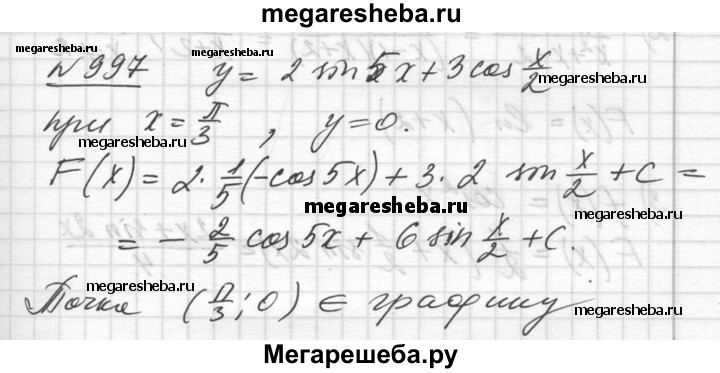 megaresheba.ru
№ 997 y = 2 sin 5x + 3 cos x/2
megaresheba.ru megaresheba.ru
при x = π/3, y = 0.
megaresheba.ru megaresheba.ru
F(x) = 2 · 1/5 (-cos 5x) + 3 · 2 sin x/2 + C =
megaresheba.ru
= - 2/5 cos 5x + 6 sin x/2 + C.
megaresheba.ru megaresheba.ru
Точка (π/3; 0) ∈ графику
megaresheba.ru
Мегарешеба.ру